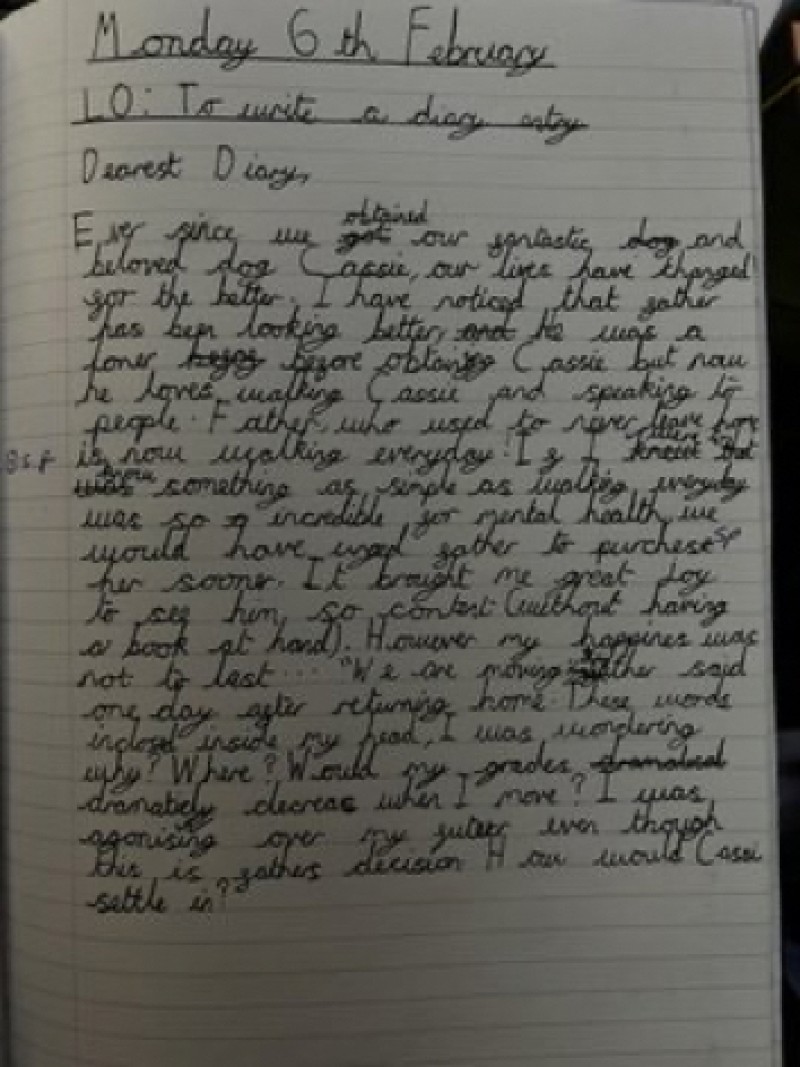 Monday 6th February
LO: To write a diary entry
Dearest Diary,
obtained
Ever since we got our fantastic dog and
beloved dog Cassie, our lives have changed
for the better. I have noticed that father
has been looking better, and he was a
loner before obtaining Cassie but now
he loves walking Cassie and speaking to
people. Father, who used to never leave
is now walking everyday! If I knew that
something as simple as walking everyday
was so incredible for mental health, we
would have urged father to purchese sp
her sooner. It brought me great Joy
to see him so content (without having
a book at hand). However my happines was
not to last... "We are moving" said
one day after returning home. These words
inside my head, I was wondering
why? Where? Would my grades
decreas when I move? I was
agonising over my even though
this is fathers decision How would Cassi
settle in?